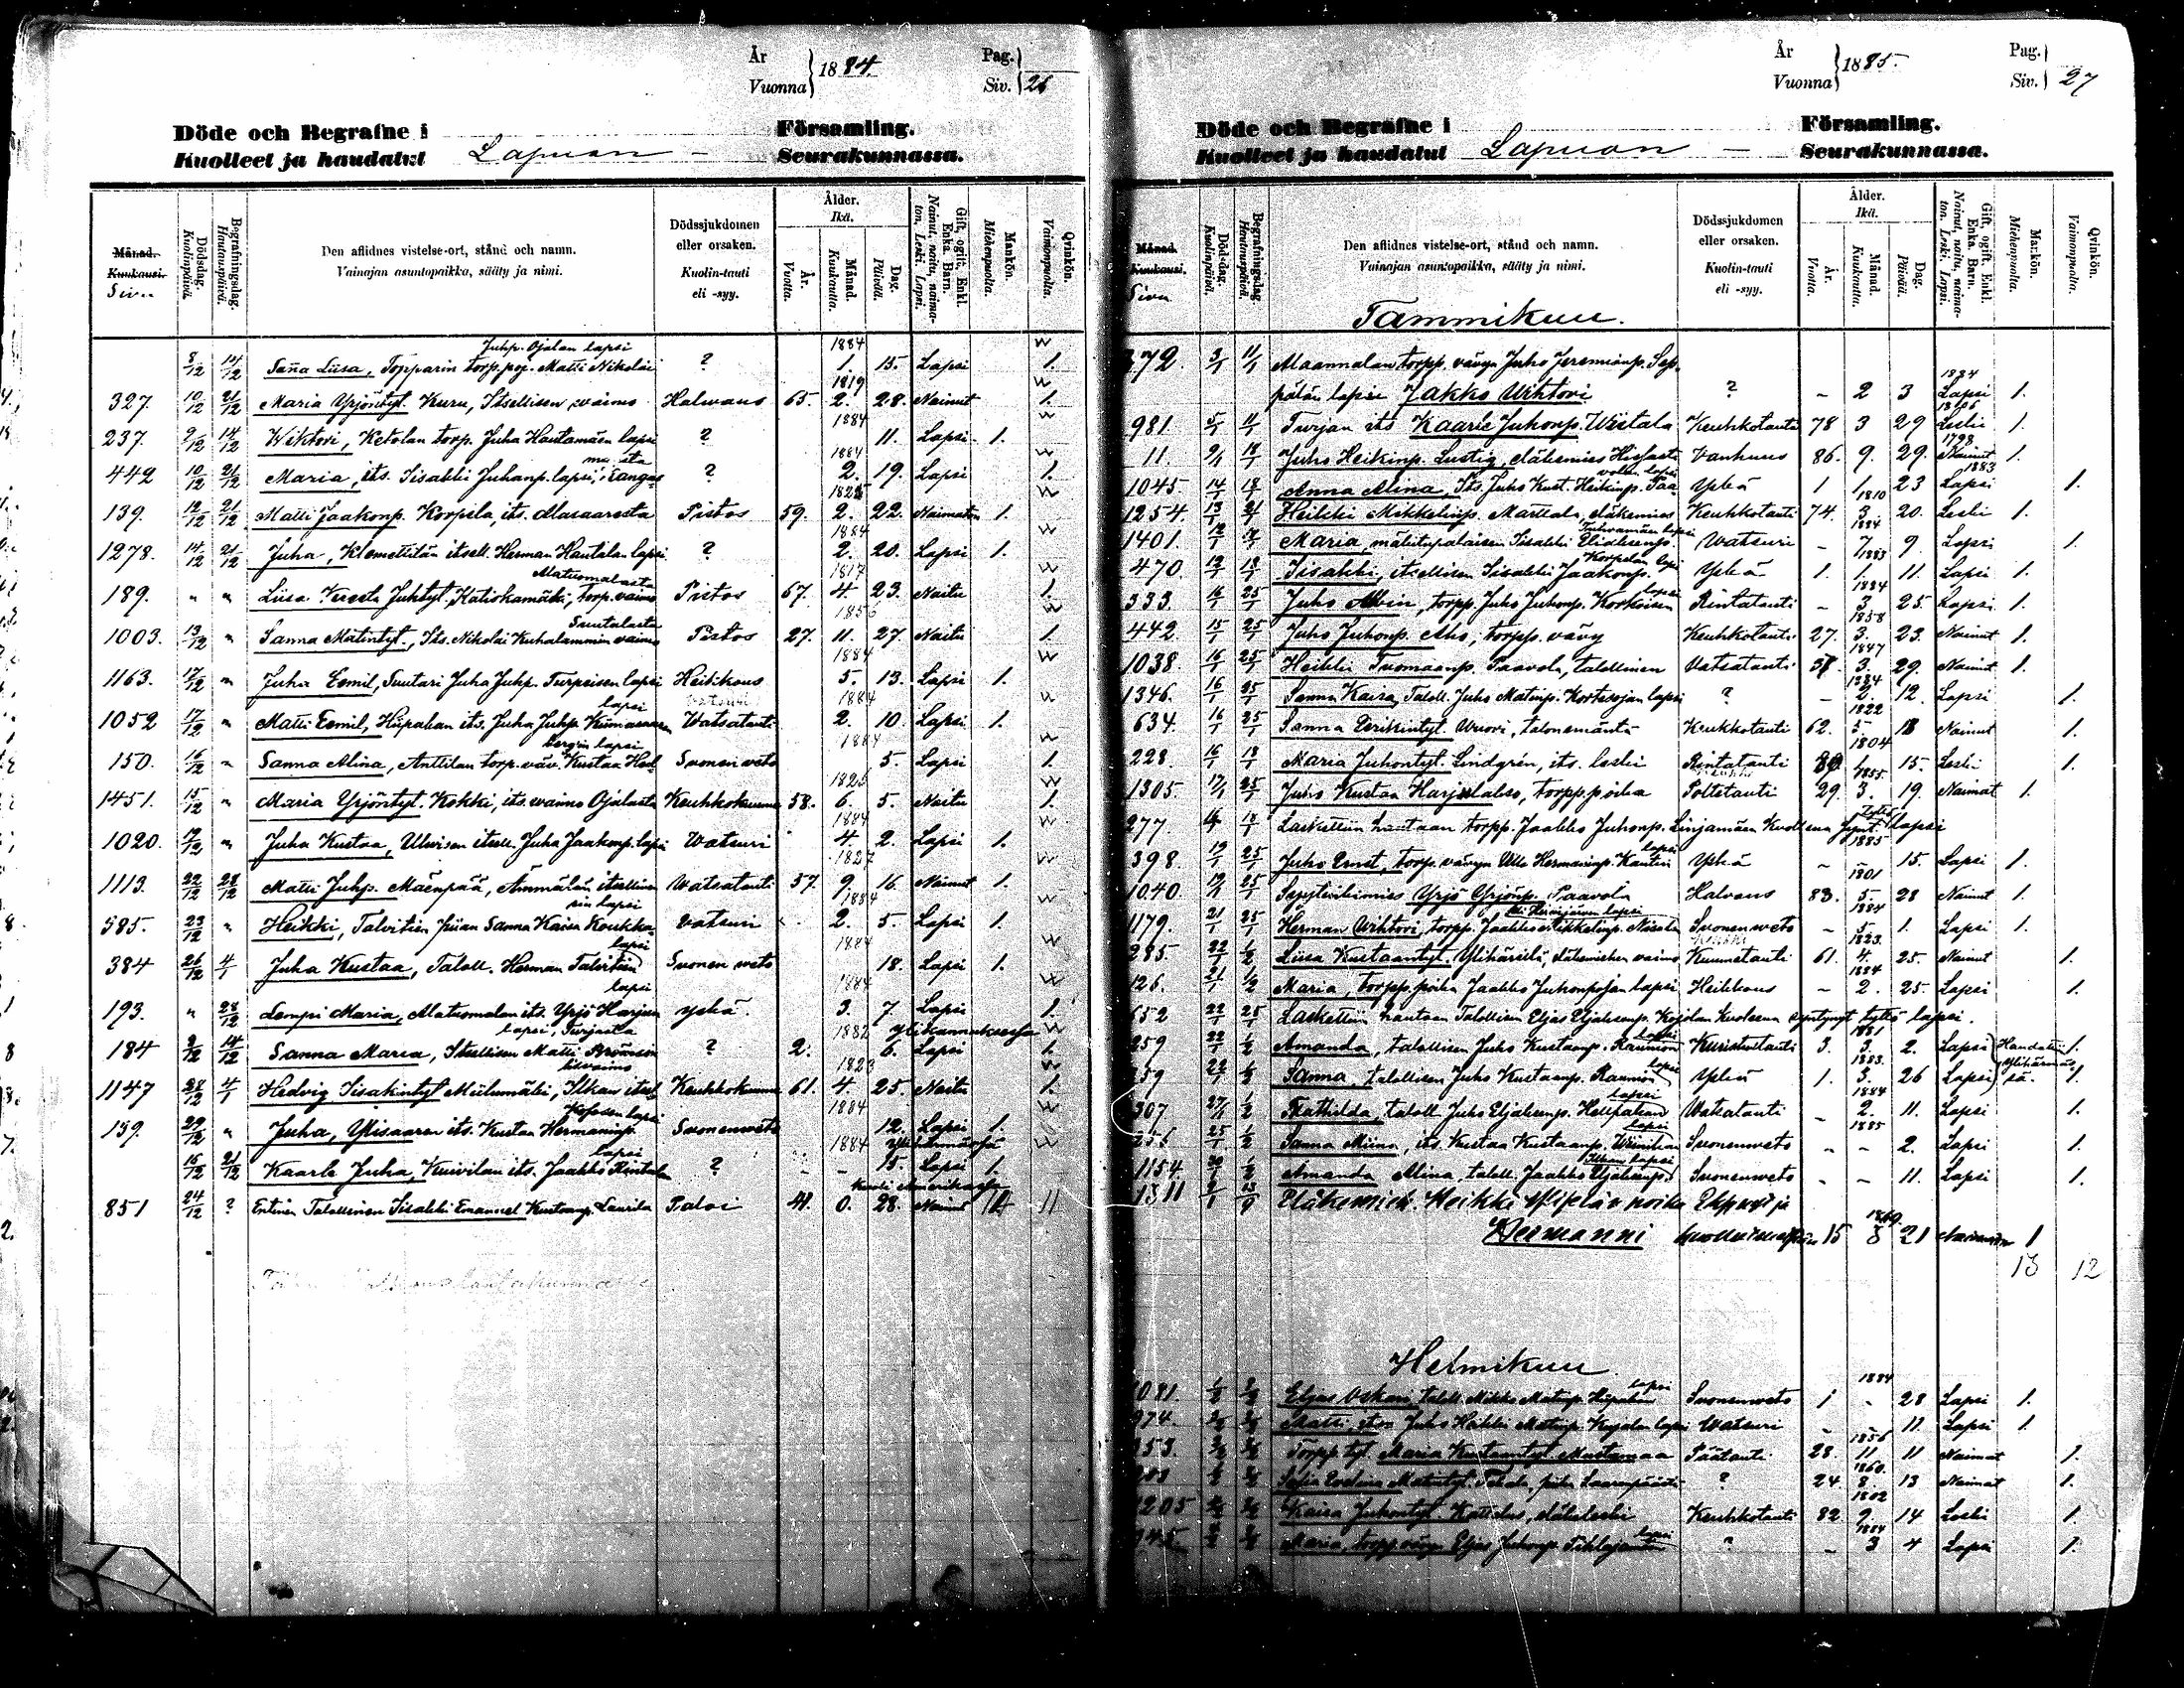 År
Vuonna 1884
Pag.
Siv. 26
Döde och Begrafne i Församling.
Kuolleet ja haudatut Lapuan Seurakunnassa.
Månad. Kuukausi. Sivu
Dödsdag. Kuolinpäivä.
Begrafningsdag. Hautauspäivä.
Den aflidnes vistelse-ort, stånd och namn.
Vainajan asuntopaikka, sääty ja nimi.
Dödssjukdomen eller orsaken.
Kuolin-tauti eli -syy.
Ålder. Ikä.
År. Vuotta.
Månad. Kuukautta.
Dag. Päivää.
Gift, ogift, Enkl. Enka. Barn.
Nainut, naitu, naimaton, Leski, Lapsi.
Mankön. Miehenpuolta.
Qvinkön. Vaimonpuolta.
Juhp. Ojalan lapsi 1884
8/12 14/12 Sanna Liisa, Topparin torp. poj. Matti Nikolai ? 1. 15. Lapsi 1.
1819
327. 10/12 21/12 Maria Yrjöntyt. Kuru, Itsellisen waimo Halwaus 65. 2. 28. Nainut 1.
1884
237. 9/12 14/12 Wiktori, Ketolan torp. Juha Hautamäen lapsi ? 11. Lapsi 1.
1884
442 10/12 21/12 Maria, its. Iisakki Juhanp. lapsi, ? 2. 19. Lapsi 1.
1825
139. 12/12 21/12 Matti Jaakonp. Korpela, its. Alasaaresta Pistos 59. 2. 22. Naimaton 1.
1884
1278. 14/12 21/12 Juha, Klemettilän itsell. Herman Hautalan lapsi ? 2. 20. Lapsi 1.
Matuomalasta 1817
189. " " Liisa Juhtyt. Katiskamäki, torp. vaimo Pistos 67. 4 23. Naitu 1.
1856
1003. 13/12 " Sanna Matintyt., Its. Nikolai Kuhalammin vaimo Pistos 27. 11. 27. Naitu 1.
1884
1163. 17/12 " Juha Eemil, Suutari Juha Juhp. Turpeisen lapsi Heikkous 5. 13. Lapsi 1.
lapsi 1884
1052 17/12 " Matti Eemil, Hiipakan its. Juha Juhp. Watsatauti 2. 10. Lapsi 1.
bergin lapsi 1884
150. 16/12 " Sanna Alina, Anttilan torp. väv. Kustaa Hed- Suonen veto 5. Lapsi 1.
1826
1451. 15/12 " Maria Yrjöntyt. Kokki, its. waimo Ojalasta Keuhkokuume 58. 6. 5. Naitu 1.
1884
1020. 17/12 " Juha Kustaa, itsell. Juha Jaakonp. lapsi Watsuri 4. 2. Lapsi 1.
1827
1113. 22/12 28/12 Matti Juhp. Mäenpää, Ämmälän itsellinen Watsatauti 57. 9. 16. Nainut 1.
sin lapsi 1884
585. 23/12 " Heikki, Talvitien piian Sanna Kaisa Koukka- vatsuri 2. 5. Lapsi 1.
lapsi 1884
384 26/12 4/1 Juha Kustaa, Taloll. Herman Talvitien Suonen veto 18. Lapsi 1.
lapsi 1884
193. " 28/12 Lempi Maria, Matuomalan its. Yrjö Harjun yskä. 3. 7. Lapsi 1.
lapsi, Turjasta 1882 Ylikannuksessa
184 9/12 14/12 Sanna Maria, Itsellisen Matti ? 2. 6. Lapsi 1.
lisvaimo 1823
1147 28/12 4/1 Hedvig Iisakintyt Miilumäki, Ilkan itsel- Keuhkokuume 61. 4. 25. Naitu 1.
lapsi 1884
159. 29/12 " Juha, Ylisaaren its. Kustaa Hermaninp. Suonenveto 12. Lapsi 1.
lapsi 1884
16/12 21/12 Kaarle Juha, Kuivilan its. Jaakko Rintala ? - - 15. Lapsi 1.
kuoli Amerikassa
851 24/12 ? Entinen Talollinen Iisakki Emanuel Kustaanp. Laurila Paloi 41. 0. 28. Nainut 14 11
År
Vuonna 1885.
Pag.
Siv. 27
Döde och Begrafne i Församling.
Kuolleet ja haudatut Lapuan Seurakunnassa.
Månad. Kuukausi. Sivu
Dödsdag. Kuolinpäivä.
Begrafningsdag Hautauspäivä.
Den aflidnes vistelse-ort, stånd och namn.
Vainajan asuntopaikka, sääty ja nimi.
Dödssjukdomen eller orsaken.
Kuolin-tauti eli -syy.
Ålder. Ikä.
År. Vuotta.
Månad. Kuukautta.
Dag. Päivää.
Gift, ogift, Enkl. Enka. Barn.
Nainut, naitu, naimaton, Leski, Lapsi.
Mankön. Miehenpuolta.
Qvinkön. Vaimonpuolta.
Tammikuu.
72. 3/1 11/1 Maannalan torpp. vävyn Juho Jeremianp. Sep-
1884
pälän lapsi Jakko Wihtori ? - 2 3 Lapsi 1.
981 5/1 11/1 Turjan its Kaarle Juhonp. Wiitala Keuhkotauti 78 3 29 Leski 1.
1798
11. 9/1 18/1 Juho Heikinp. Lustig, eläkemies Vanhuus 86. 9. 29. Nainut 1.
1883
1045. 14/1 18/1 Anna Alina, Its. Juho Kust. Heikinp. Paa- Yskä 1 1 23 Lapsi 1.
1810
1254. 13/1 21/1 Heikki Mikkelinp. Marttala, eläkemies Keuhkotauti 74. 3. 20. Leski 1.
1884
1401. 12/1 Maria, mäkitupalaisen Iisakki Eliaksenp. Watsuri - 7 9. Lapsi 1.
Korpelan lapsi 1883
470. 13/1 18/1 Iisakki, itsellisen Iisakki Jaakonp. Yskä 1. 1. 11. Lapsi 1.
lapsi 1884
333. 16/1 25/1 Juho Alvin, torpp. Juho Juhonp. Korkoisen Rintatauti - 3. 25. Lapsi 1.
1858
442. 15/1 25/1 Juho Juhonp. Aho, torpp. vävy Keuhkotauti 27. 3. 23. Nainut 1.
1847
1038. 16/1 25/1 Heikki Tuomaanp. Paavola, talollinen Vatsatauti 37. 3. 29. Nainut 1.
1884
1346. 16/1 25/1 Sanna Kaisa, Taloll. Juho Matinp. Kortesojan lapsi ? - 2. 12. Lapsi 1.
1822
634. 16/1 25/1 Sanna Eerikintyt. Wuori, talonemäntä Keuhkotauti 62. 5 18 Nainut 1.
1804
228. 16/1 18/1 Maria Juhontyt. Lindgrén, its. leski Rintatauti 80 1 15. Leski 1.
1855.
1305. 17/1 25/1 Juho Kustaa Harjulakso, torpp. poika Polttotauti 29. 3. 19. Naimat 1.
277. 18/1 Laskettiin hautaan torpp. Jaakko Juhonp. Linjamäen kuollena synt. tyttö lapsi
lapsi 1885
398. 19/1 25/1 Juho Ernst, torp. vävyn Ville Hermaninp. Kantin Yskä - - 15. Lapsi 1.
1801
1040. 19/1 25/1 Sepytiviimies Yrjö Yrjönp. Paavola Halvaus 83. 5. 28 Nainut 1.
1884
1179. 21/1 25/1 Herman Wihtori, torpp. Jaakko Mikkelinp. Suonenveto - 5. 1. Lapsi 1.
1823.
285. 22/1 1/2 Liisa Kustaantyt. Ylihärsilä, eläkemiehen vaimo Kuumetauti 61. 4. 25. Nainut 1.
1884
126. 21/1 1/2 Maria, torpp. poika Jaakko Juhonp. Ojan lapsi Heikkous - 2. 25. Lapsi 1.
652 22/1 25/1 Laskettiin hautaan Talollisen Eljas Eljaksenp. Kojolan kuolleena syntynyt tyttö lapsi.
lapsi 1881
259 22/1 1/2 Amanda, talollisen Juho Kustaanp. Raumion Kuristustauti 3. 3. 2. Lapsi Haudattu 1.
lapsi 1883.
59 22/1 1/2 Sanna, talollisen Juho Kustaanp. Raumion Yskä 1. 3. 26 Lapsi Ylihärmäs- sä. 1.
lapsi 1884
307 27/1 1/2 Mathilda, taloll. Juho Eljaksenp. Watsatauti - 2. 11. Lapsi 1.
lapsi 1885
256 25/1 1/2 Sanna Miina, its. Kustaa Kustaanp. Suonenveto - - 2. Lapsi 1.
Ilkan lapsi
1154 1/2 Amanda Alina, taloll. Jaakko Eljaksenp. Suonenveto - - 11. Lapsi 1.
1311 Eläkemieh. Heikki poika
Hermanni 15 8 21 Naimaton 1
13 12
Helmikuu.
lapsi 1884
1081. Eljas Oskari, taloll. Mikko Matinp. Hiipakan Suonenveto 1 - 28 Lapsi 1.
974. Matti, its. Juho Heikki Matinp. Kojolan lapsi Watsuri - - 11. Lapsi 1.
1856
253. Torpp. tyt. Maria Kustaantyt. Mustamaa Päätauti 28. 11. 11 Naimat 1.
1860.
? 24 8. 13 Naimat 1.
1802
1205 Kaisa Juhontyt. eläkeleski Keuhkotauti 82 9. 14 Leski 1.
lapsi 1884
945. Maria, torpp. vävyn Eljas Juhonp. ? - 3 4 Lapsi 1.